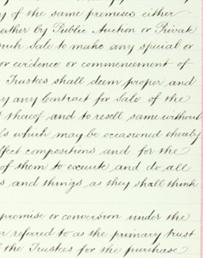 y of the same premises either
either by Public Auction or Private
such Sale to make any special or
or evidence or commencement of
Trustees shall deem proper and
y any Contract for Sale of the
thereof and to resell same without
which may be occasioned thereby
effect compositions and for the
of them to execute and do all
s and things as they shall think
promise or conversion under the
referred to as the primary trust
the Trustees for the purchase